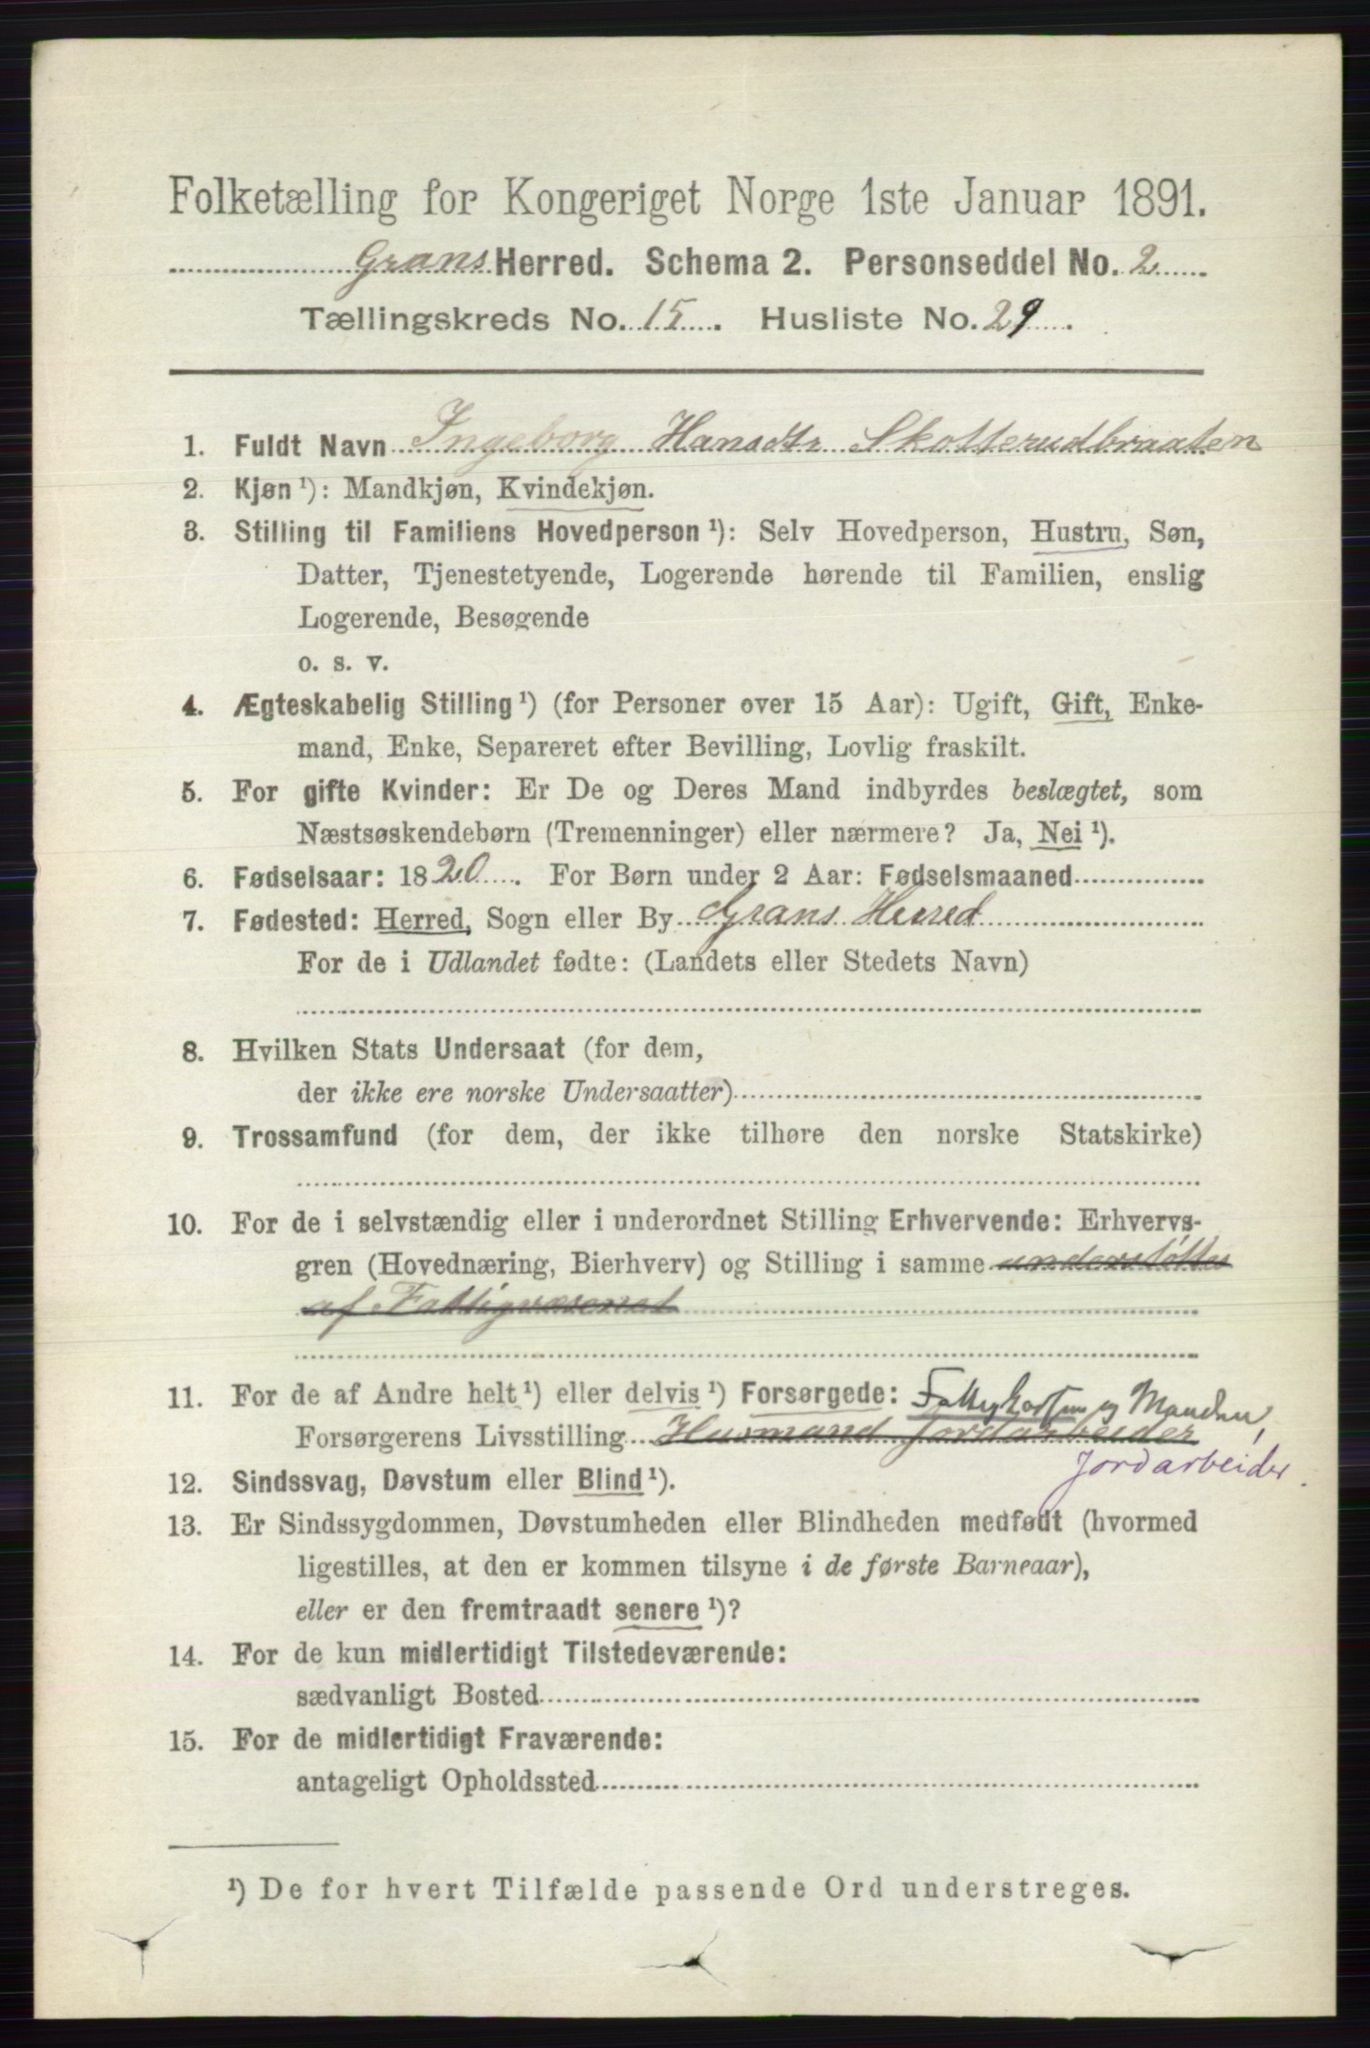 Folketælling for Kongeriget Norge 1ste Januar 1891.
Grans Herred. Schema 2. Personseddel No. 2
Tællingskreds No. 15. Husliste No. 29.
1. Fuldt Navn Ingeborg Hansdtr Skotterudbraaten
2. Kjøn ¹): Mandkjøn, Kvindekjøn.
3. Stilling til Familiens Hovedperson ¹): Selv Hovedperson, Hustru, Søn,
Datter, Tjenestetyende, Logerende hørende til Familien, enslig
Logerende, Besøgende
o. s. v.
4. Ægteskabelig Stilling ¹) (for Personer over 15 Aar): Ugift, Gift, Enke-
mand, Enke, Separeret efter Bevilling, Lovlig fraskilt.
5. For gifte Kvinder: Er De og Deres Mand indbyrdes beslægtet, som
Næstsøskendebørn (Tremenninger) eller nærmere? Ja, Nei ¹).
6. Fødselsaar: 1820. For Børn under 2 Aar: Fødselsmaaned
7. Fødested: Herred, Sogn eller By Grans Herred
For de i Udlandet fødte: (Landets eller Stedets Navn)
8. Hvilken Stats Undersaat (for dem,
der ikke ere norske Undersaatter)
9. Trossamfund (for dem, der ikke tilhøre den norske Statskirke)
10. For de i selvstændig eller i underordnet Stilling Erhvervende: Erhvervs-
gren (Hovednæring, Bierhverv) og Stilling i samme understøttes
af Fattigvæsenet
11. For de af Andre helt ¹) eller delvis ¹) Forsørgede: og Manden,
Forsørgerens Livsstilling Husmand Jordarbeider
Jordarbeider.
12. Sindssvag, Døvstum eller Blind ¹).
13. Er Sindssygdommen, Døvstumheden eller Blindheden medfødt (hvormed
ligestilles, at den er kommen tilsyne i de første Barneaar),
eller er den fremtraadt senere ¹)?
14. For de kun midlertidigt Tilstedeværende:
sædvanligt Bosted
15. For de midlertidigt Fraværende:
antageligt Opholdssted
¹) De for hvert Tilfælde passende Ord understreges.